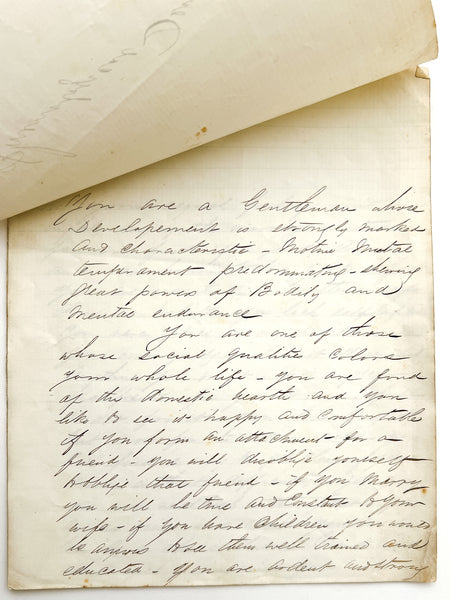 You are a Gentleman whose
Developement is strongly marked
and characteristic - Motive Mental
temperament predominating - showing
great powers of Bodily and
Mental endurance
You are one of those
whose social qualities Colors
your whole life - you are fond
of the domestic hearth and you
like to see it happy and Comfortable
if you form an attachment for a
friend - you will disoblige yourself
to oblige that friend - if you Marry
you will be true and Constant to your
wife - if you have Children you would
be anxious to see them well trained and
educated - You are ardent and strong